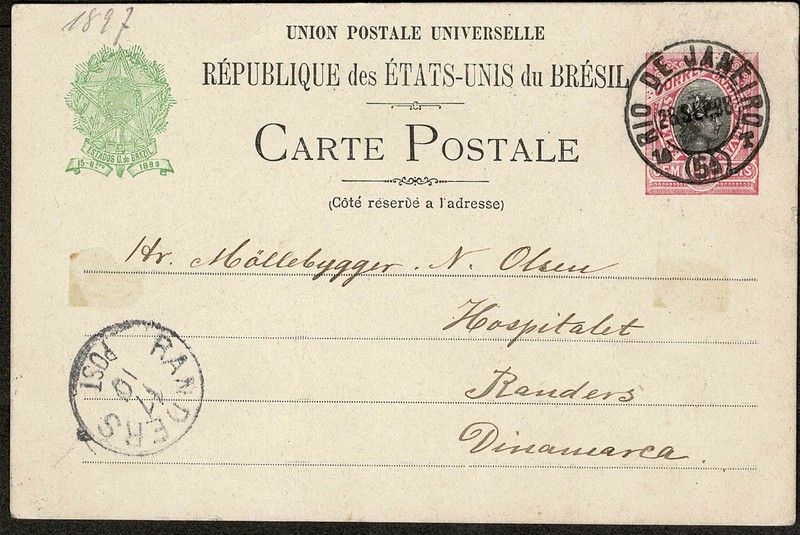 1897
UNION POSTALE UNIVERSELLE
RÉPUBLIQUE des ÉTATS-UNIS du BRÉSIL
CARTE POSTALE
(Côté réservé a l'adresse)
ESTADOS U. do BRAZIL
15-Nbro 1889
RIO DE JANEIRO
SEP
(5A)
Hr. Möllebygger. N. Olsen
Hospitalet
Randers
Dinamarca.
RANDERS
POST
17
10